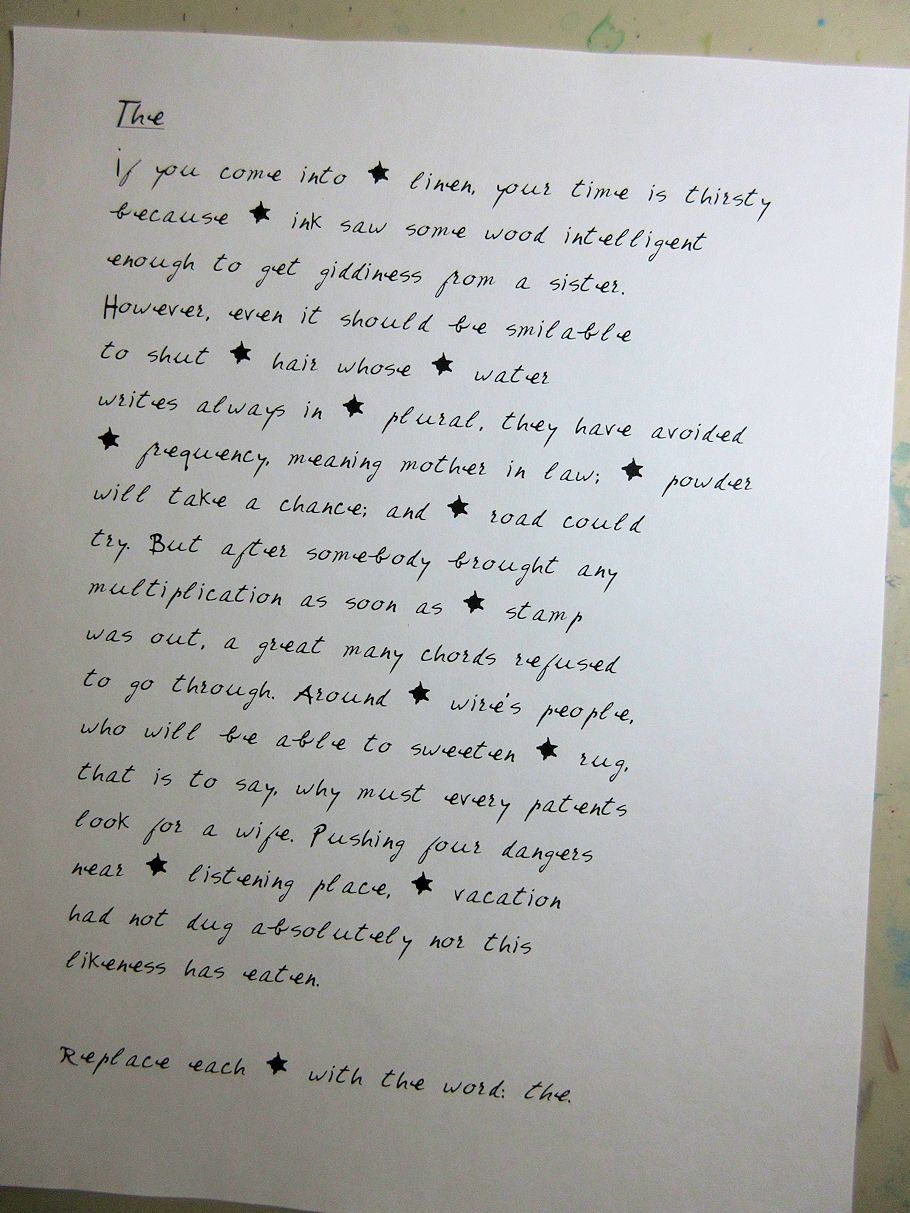 The
if you come into ★ linen, your time is thirsty
because ★ ink saw some wood intelligent
enough to get giddiness from a sister.
However, even it should be smilable
to shut ★ hair whose ★ water
writes always in ★ plural, they have avoided
★ frequency, meaning mother in law; ★ powder
will take a chance; and ★ road could
try. But after somebody brought any
multiplication as soon as ★ stamp
was out, a great many chords refused
to go through. Around ★ wire's people,
who will be able to sweeten ★ rug,
that is to say, why must every patents
look for a wife. Pushing four dangers
near ★ listening place, ★ vacation
had not dug absolutely nor this
likeness has eaten.
Replace each ★ with the word: the.